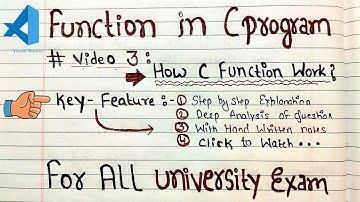 Function in C program
Visual Studio
# Video 3:
How C Function Work?
Key-Feature:-
① Step by Step Explanation
② Deep Analysis of Question
③ With Hand Written notes
④ Click to Watch...
For ALL university Exam